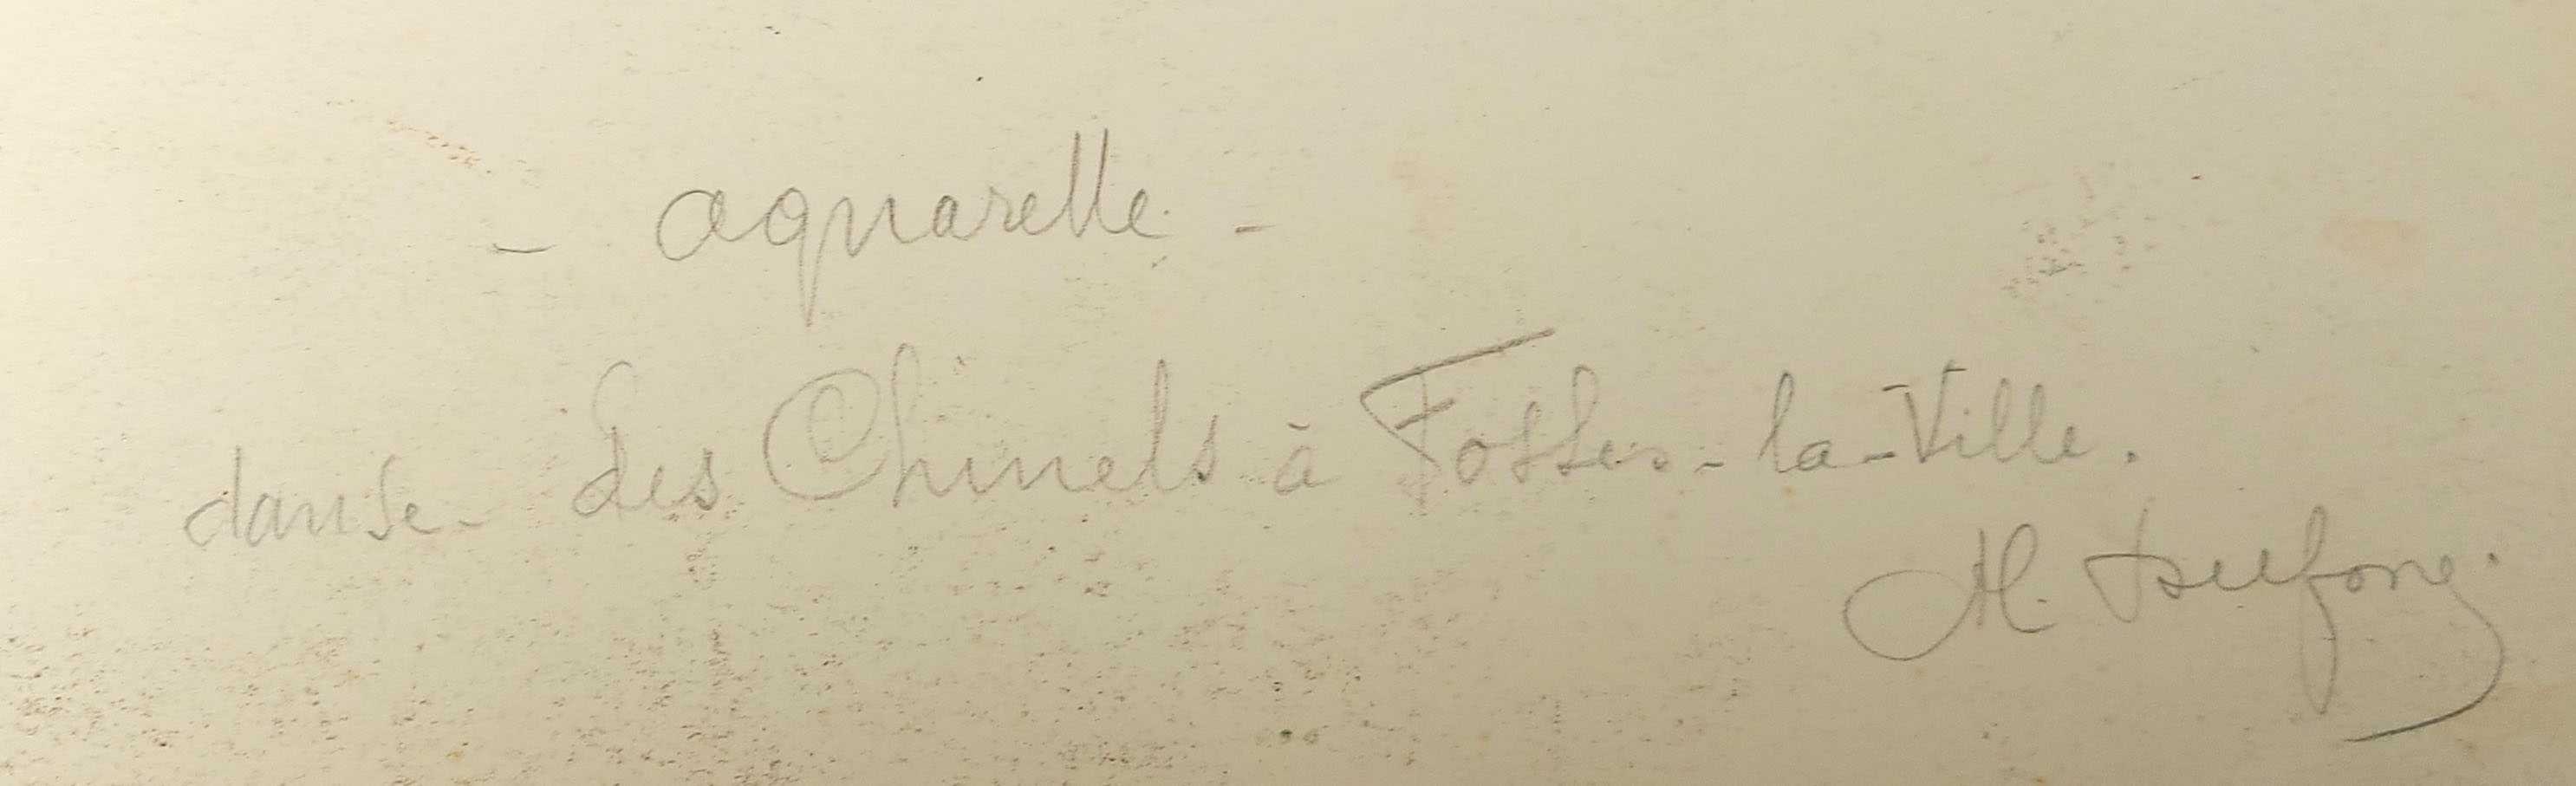 - aquarelle -
danse des Chinels à Fosses-la-Ville.
M.